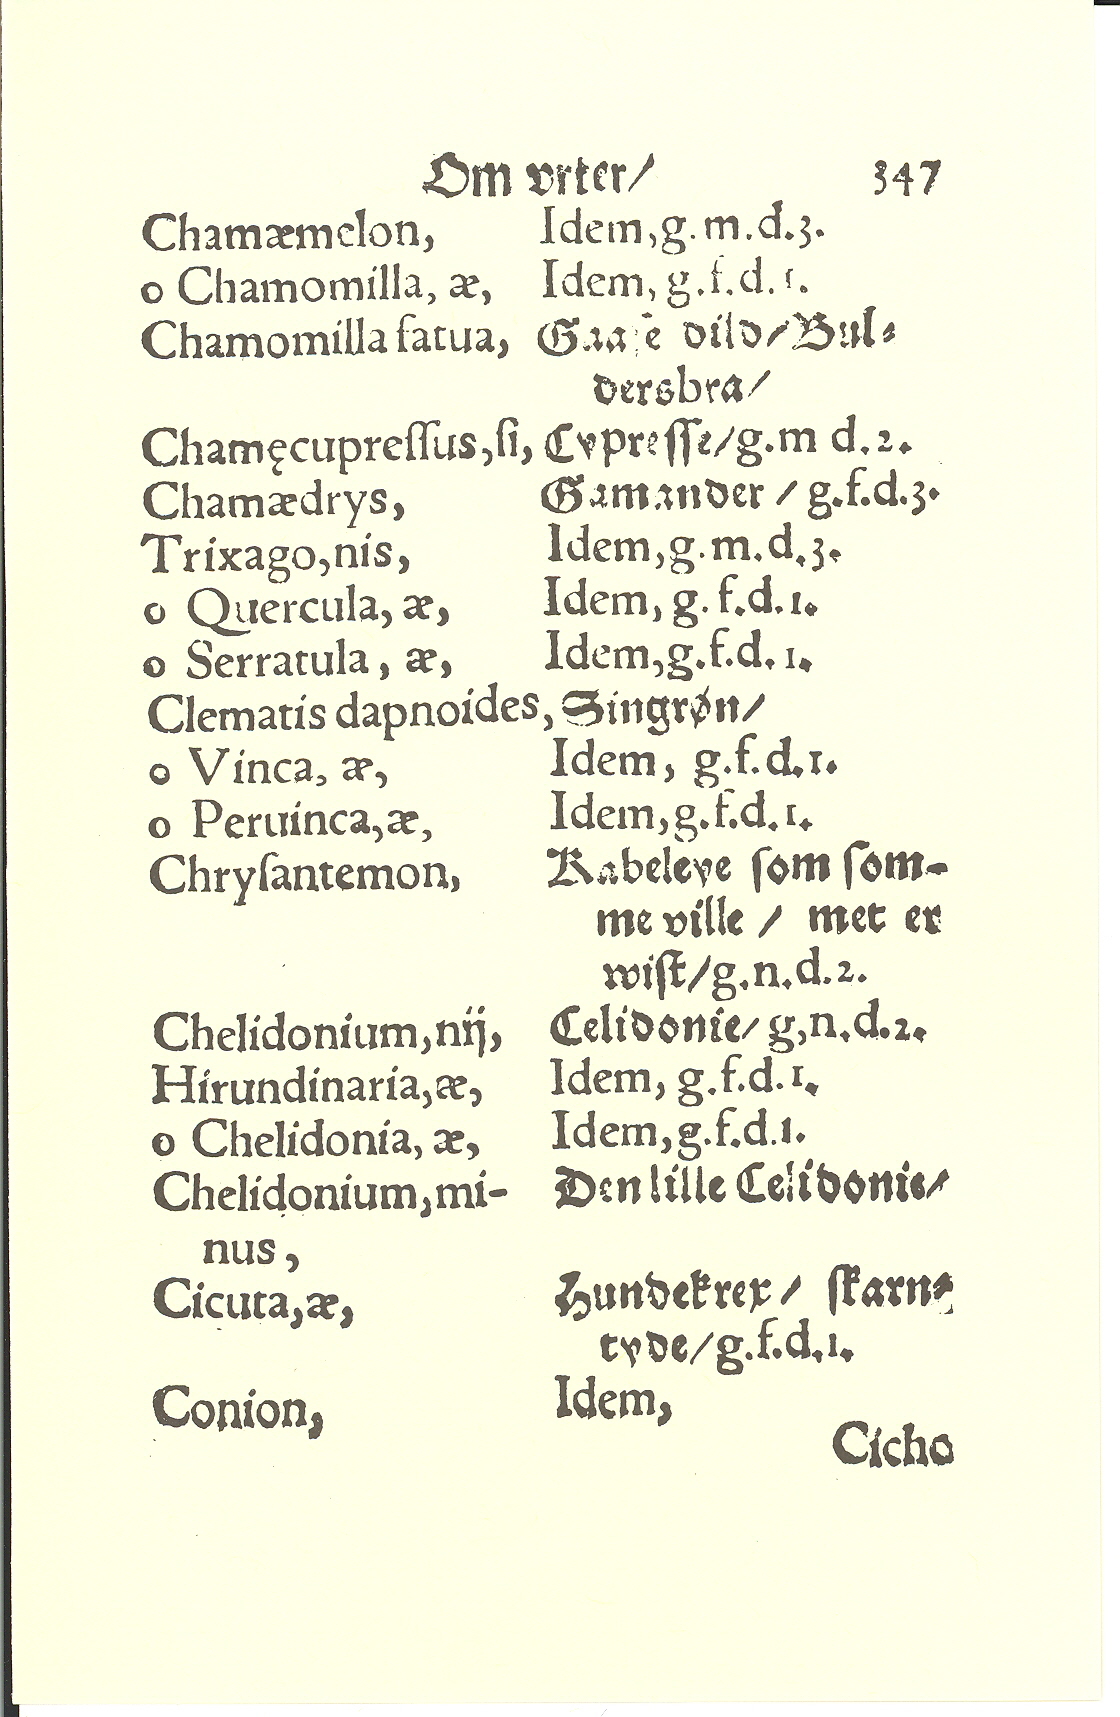 Om vrter/ 347
Chamæmelon, Idem,g.m.d.3.
o Chamomilla, æ, Idem, g.f.d.1.
Chamomilla fatua, vild/Bul⸗
dersbra/
Chamęcupreſſus,ſi, Cypreſſe/g.m d.2.
Chamædrys, Gamander / g.f.d.3.
Trixago,nis, Idem,g.m.d.3.
o Quercula, æ, Idem, g.f.d.1.
o Serratula, æ, Idem,g.f.d.1.
Clematis dapnoides, Singrøn/
o Vinca, æ, Idem, g.f.d.1.
o Peruinca,æ, Idem,g.f.d.1.
Chryſantemon, Kabeleye ſom ſom-
me ville / met er
wiſt/g.n.d.2.
Chelidonium,nij, Celidonie/ g,n.d.2.
Hirundinaria,æ, Idem, g.f.d.1.
o Chelidonia, æ, Idem,g.f.d.1.
Chelidonium,mi- Den lille Celidonie/
nus,
Cicuta,æ, Hundekrex/ ſkarn⸗
tyde/g.f.d.1.
Conion, Idem,
Cicho